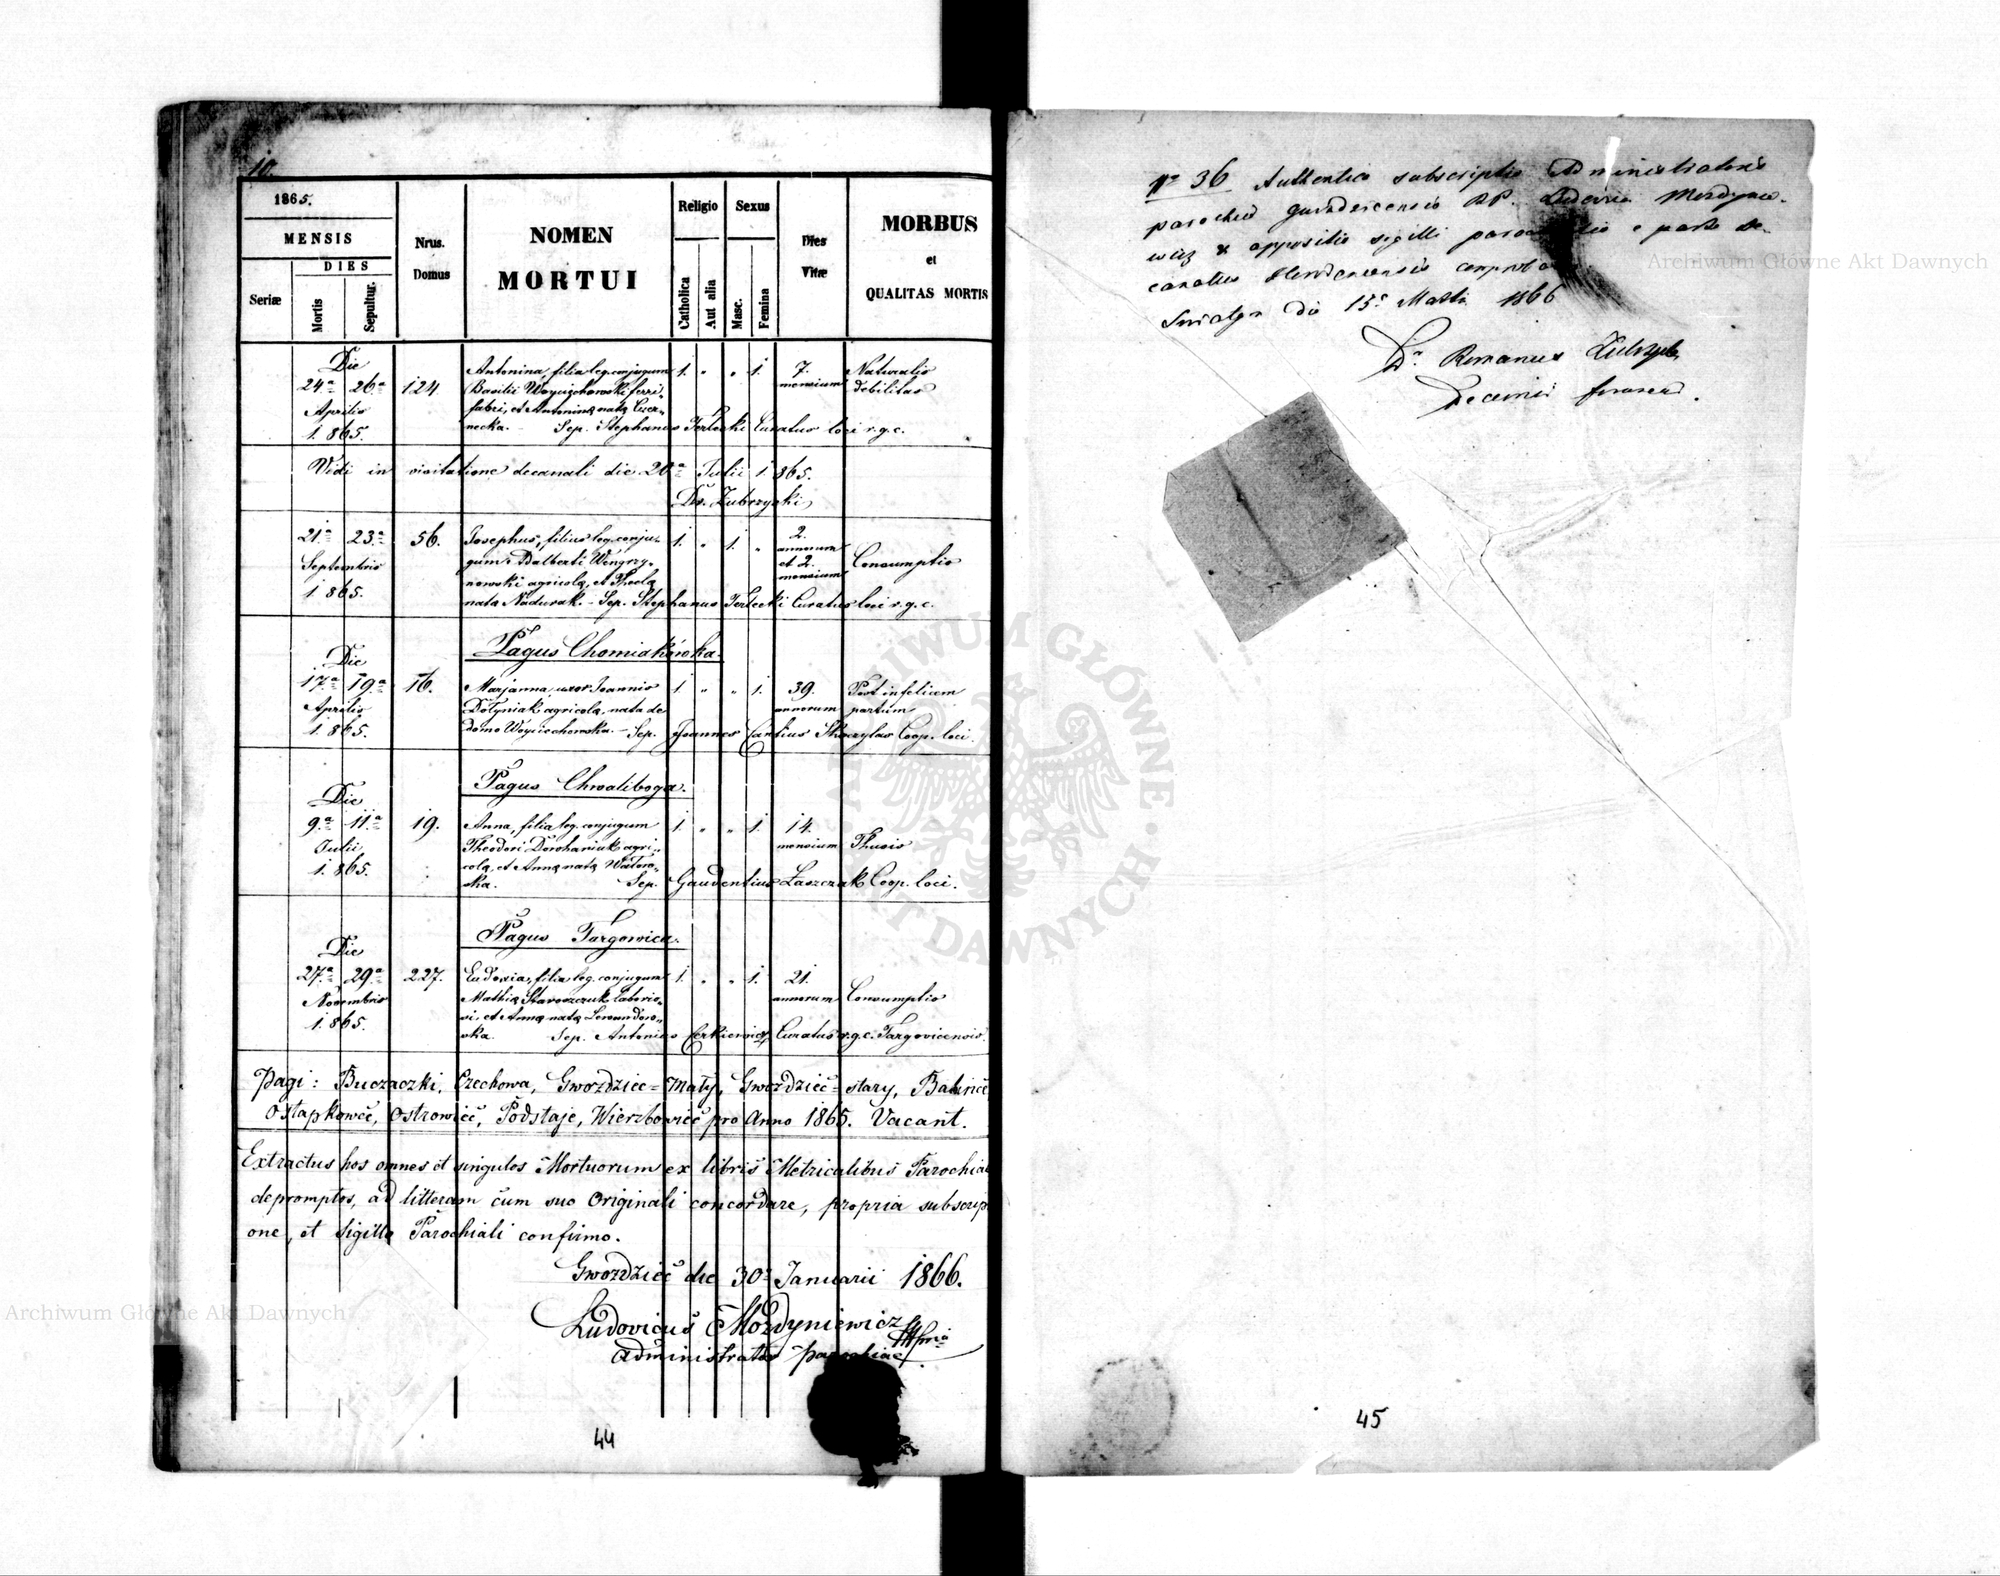 10.
1865.
MENSIS
DIES
Seriæ
Mortis
Sepultur.
Nrus.
Domus
NOMEN
MORTUI
Religio
Catholica
Aut alia
Sexus
Masc.
Femina
Dies
Vitæ
MORBUS
et
QUALITAS MORTIS
Die
24ª 26ª
Aprilis
1865.
124.
Antonina, filia leg. conjugum
Basilii Woyciechowski ferri-
fabri, et Antoninæ natæ
necka. - Sep. Stephanus Terlecki Curatus loci r. g. c.
1. " " 1.
7.
mensium
Naturalis
debilitas
Vidi in visitatione decanali die 20ª Julii 1865.
Dr. Zubrzycki
21ª 23ª
Septembris
1865.
56.
Josephus, filius leg. conju-
gum Adalberti Wengrzy-
nowski agricolæ, et Theclæ
nata Nadurak. - Sep. Stephanus Terlecki Curatus loci r. g. c.
1. " 1. "
2.
annorum
et 2.
mensium
Consumptio
Pagus Chomiakówka.
Die
17ª 19ª
Aprilis
1865.
16.
Marjanna, uxor Joannis
Dołyniak agricolæ, nata de
domo Woyciechowska. - Sep. Joannes Cantius Skoczylas Coop. loci.
1. " " 1.
39.
annorum
Post infelicem
partum
Pagus Chwaliboga.
Die
9ª 11ª
Julii
1865.
19.
Anna, filia leg. conjugum
Theodori Dorohaniuk agri-
colæ, et Annæ natæ
ska. Sep. Gaudentius Łaszczak Coop. loci.
1. " " 1.
14.
mensium
Thusis
Pagus Targowica.
Die
27ª 29ª
Novembris
1865.
227.
Eudoxia, filia leg. conjugum
Mathiæ Staroszczuk laborio-
si, et Annæ natæ
ska. Sep. Antonius Cerkiewicz Curatus r. g. c. Targovicensis.
1. " " 1.
21.
annorum
Consumptio
Pagi: Buczaczki, Czechowa, Gwoździec-mały, Gwoździec-stary, Balińce
Ostapkowce, Ostrowiec, Podstaje, Wierzbowiec pro Anno 1865. Vacant.
Extractus hos omnes et singulos Mortuorum ex libris Metricalibus Parochial
depromptos, ad litteram cum suo Originali concordare, propria subscripti
one, et sigillo Parochiali confirmo.
Gwoździec die 30ª Januarii 1866.
Ludovicus Mozdyniewicz mpria
Administrator parochiae
44
Nº 36 Authentica subscriptio Administratoris
parochiæ Gwozdzecensis RP. Ludovici Mozdynie-
wicz & appositio sigilli parochialis e parte De-
canatus comproba
die 13ª Martii 1866
Dr. Romanus Zubrzycki
Decanus foraneus.
45
Archiwum Główne Akt Dawnych
Archiwum Główne Akt Dawnych
ARCHIWUM GŁÓWNE AKT DAWNYCH